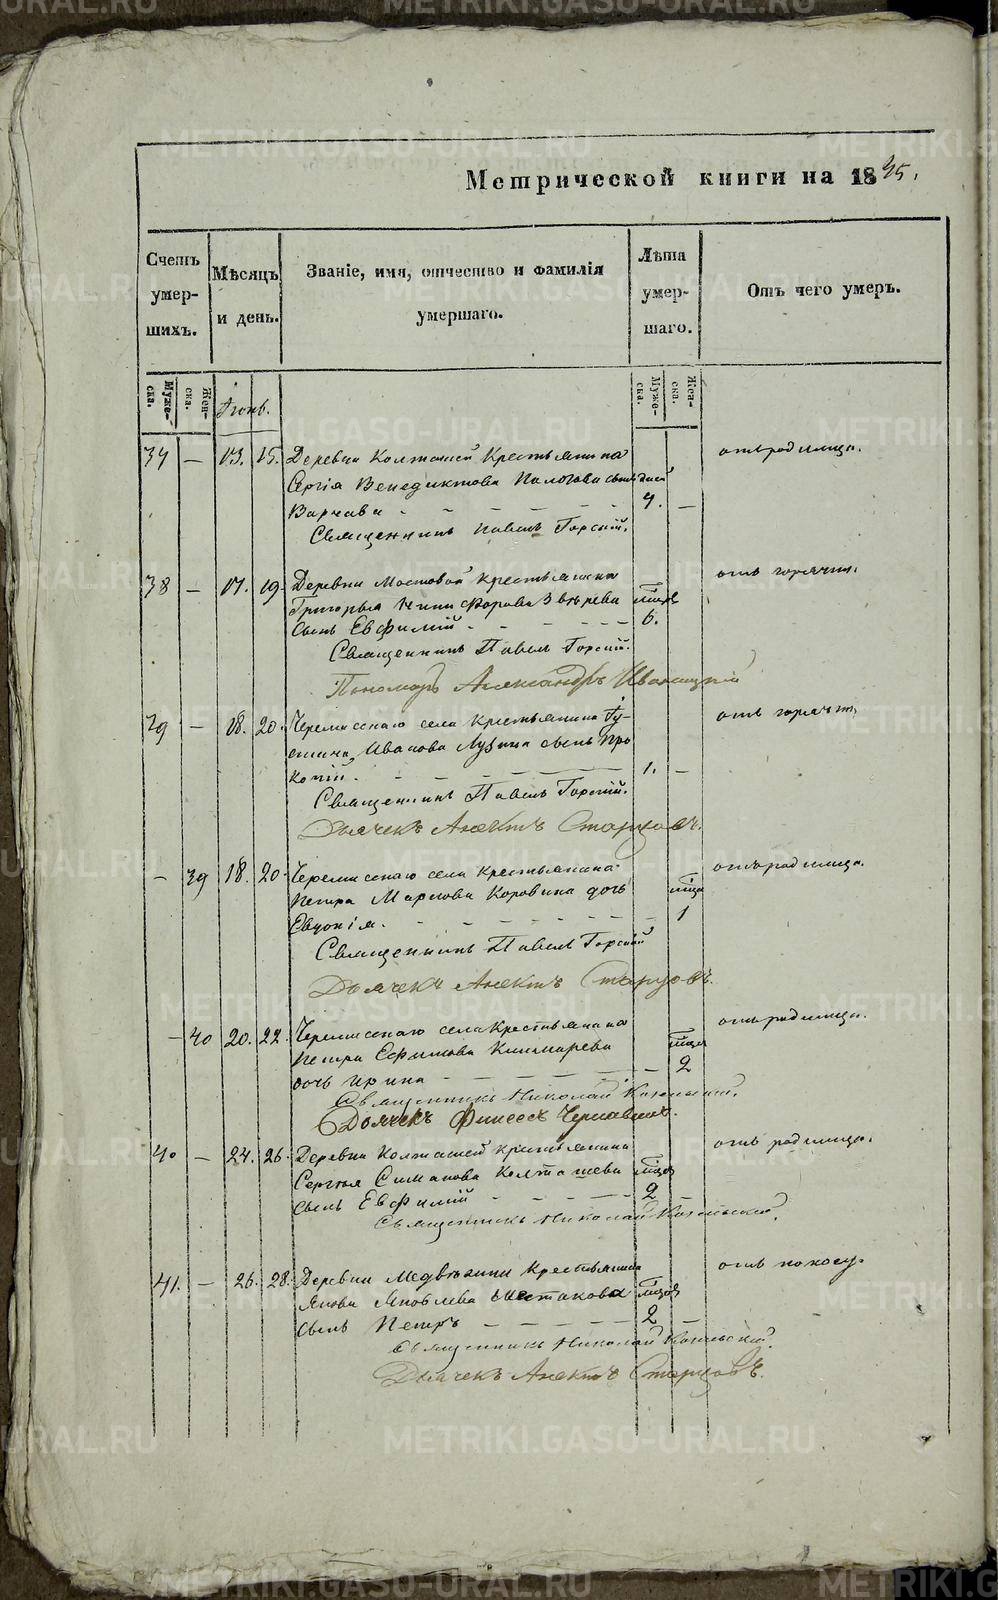 Метрической книги на 1845.
Счетъ умер- шихъ.
Мѣсяцъ и день.
Званіе, имя, отчество и фамилія
умершаго.
Лѣта умер- шаго.
Отъ чего умеръ.
Муже- ска.
Жен- ска.
Іюнь.
Муже- ска.
Жен- ска.
— 13. 15. Деревни Колташей Крестьянина отъ родимца.
Сергія Венедиктова сынъ дней
7. —
Священникъ Павелъ Горскій.
38 — 17. 19. Деревни Мостовой крестьянина отъ горячки.
Григорья Никифорова Звѣрева
сынъ Евфимій 6.
Священникъ Павелъ Горскій.
Пономарь Александръ
39 — 18. 20. Черемисскаго села крестьянина Гу- отъ горячки.
Иванова сынъ Про
копій. 1. —
Священникъ Павелъ Горскій.
Дьячекъ Старцовъ.
— 39 18. 20. Черемисскаго села крестьянина отъ родимца.
Петра Маркова Коровина дочь
Евдокія. 1
Священникъ Павелъ Горскій
Дьячекъ Старцовъ.
— 40 20. 22. Черемисскаго села Крестьянина отъ родимца.
Петра Ефимова
дочь Ирина 2
Священникъ Николай
Дьячекъ Финеесъ Чернавинъ.
40 — 24. 26. Деревни Колташей крестьянина отъ родимца.
Сергія Симанова Колташева
сынъ Евфимій 2 —
Священникъ Николай
41. — 26. 28. Деревни Медвѣжки Крестьянина отъ поносу.
Якова Яковлева Шестакова
сынъ Петръ 2 —
Священникъ Николай
Дьячекъ Старцовъ.
METRIKI.GASO-URAL.RU